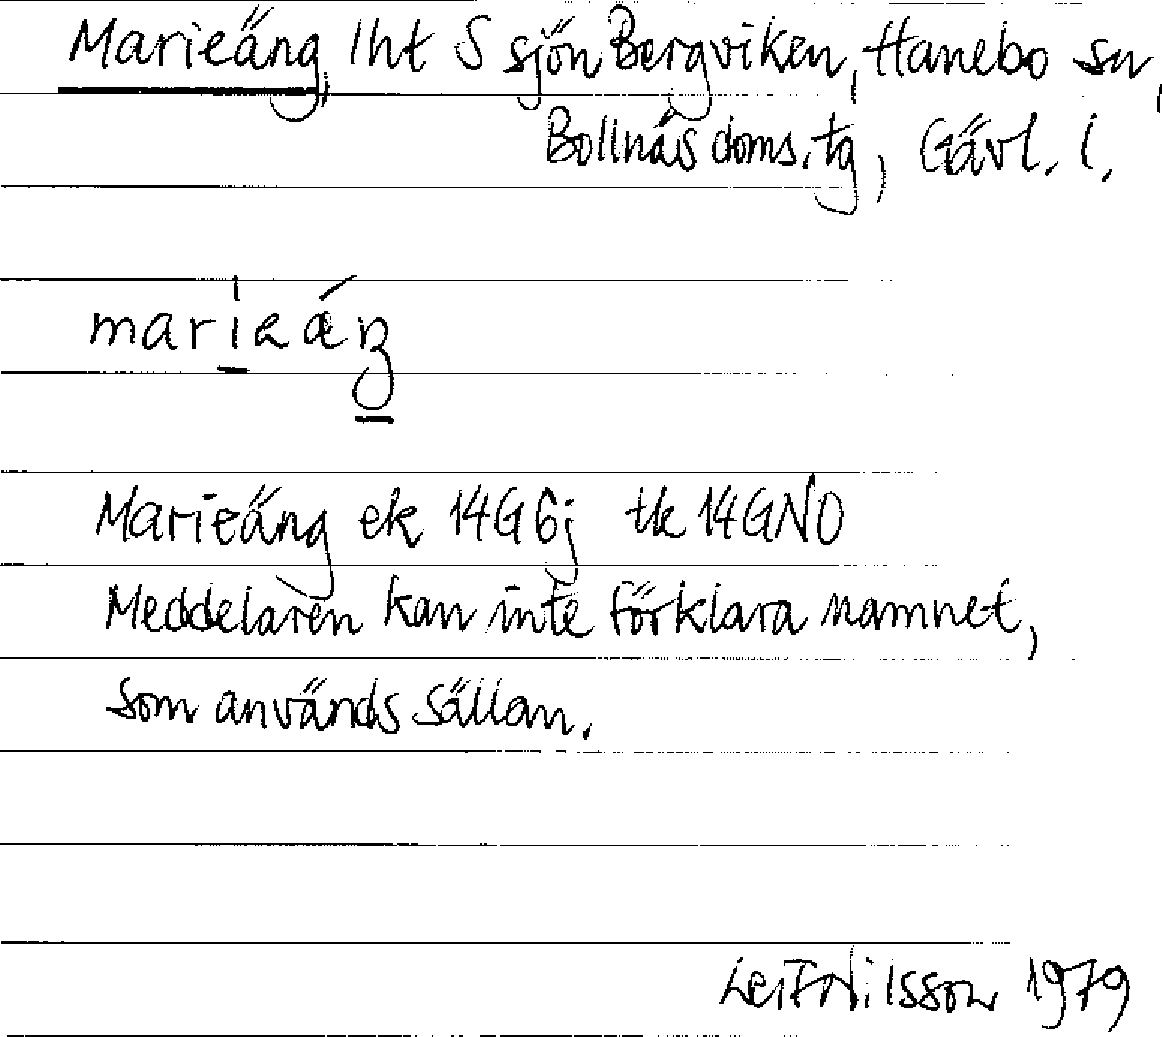 Marieäng, lht S sjön Bergviken, Hanebo sn,
Bollnäs doms.tg, Gävl. l.
Marieäng ek 14G6j tk 14GNO
Meddelaren kan inte förklara namnet,
som används sällan.
Leif Nilsson 1979